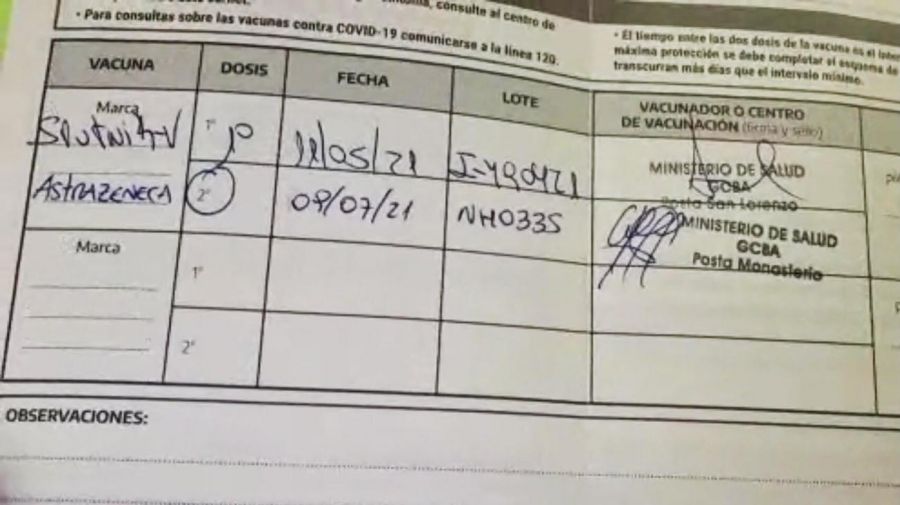 consulte al centro de
• Para consultas sobre las vacunas contra COVID-19 comunicarse a la línea 120.
• El tiempo entre las dos dosis de la vacuna es el
máxima protección se debe completar el esquema de
transcurran más días que el intervalo mínimo.
VACUNA DOSIS FECHA LOTE VACUNADOR O CENTRO
DE VACUNACIÓN (firma y sello)
Marca
Sputnik V 1º 1º 11/05/21
MINISTERIO DE SALUD
GCBA
Posta San Lorenzo
ASTRAZENECA 2º 09/07/21 NH0335
MINISTERIO DE SALUD
GCBA
Posta Monasterio
Marca
1º
2º
OBSERVACIONES: